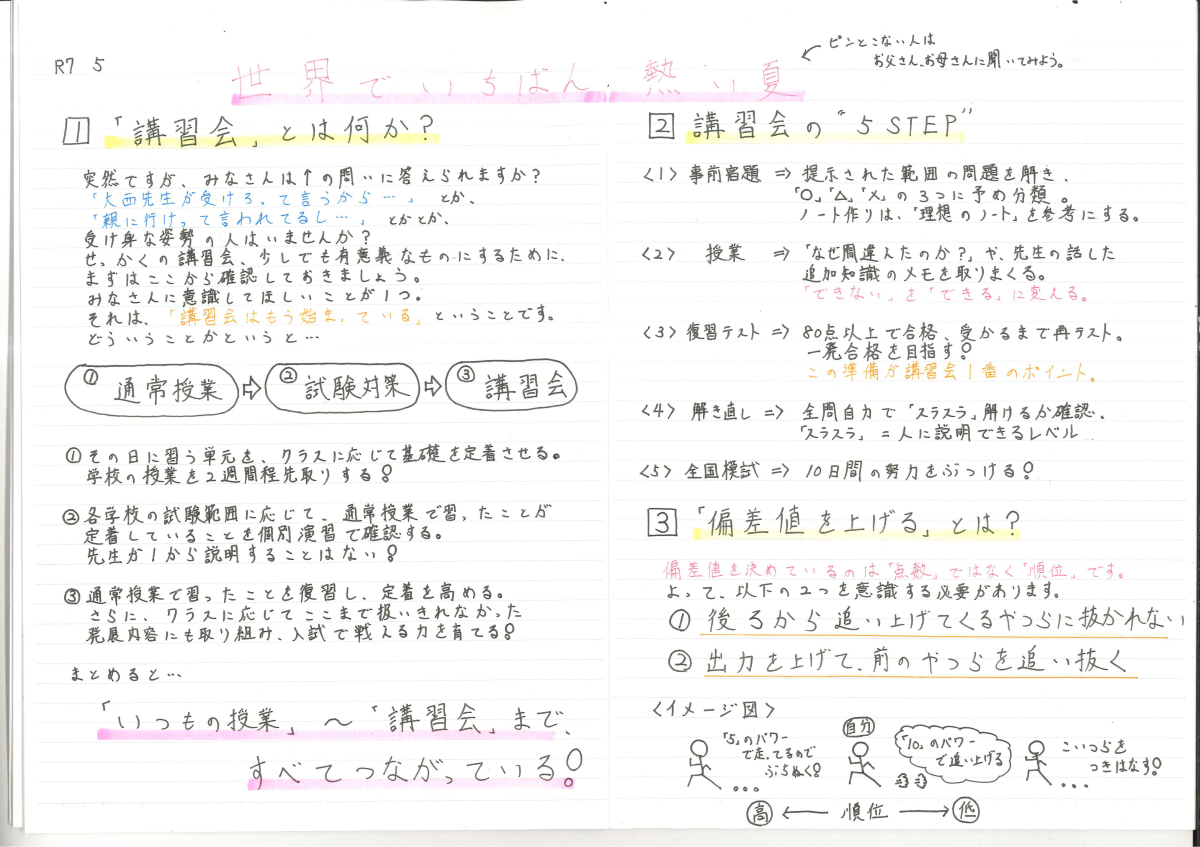 R7 5
世界でいちばん熱い夏
ピンとこない人は
お父さん、お母さんに聞いてみよう。
1 「講習会」とは何か?
突然ですが、みなさんは↑の問いに答えられますか?
「大西先生が受けろって言うから…」とか、
「親に行けって言われてるし…」とかとか、
受け身な姿勢の人はいませんか?
せっかくの講習会、少しでも有意義なものにするために、
まずはここから確認しておきましょう。
みなさんに意識してほしいことが1つ。
それは、「講習会はもう始まっている」ということです。
どういうことかというと…
① 通常授業 ⇨ ② 試験対策 ⇨ ③ 講習会
①その日に習う単元を、クラスに応じて基礎を定着させる。
学校の授業を2週間程先取りする!
②各学校の試験範囲に応じて、通常授業で習ったことが
定着していることを個別演習で確認する。
先生が1から説明することはない!
③通常授業で習ったことを復習し、定着を高める。
さらに、クラスに応じてここまで扱いきれなかった
発展内容にも取り組み、入試で戦える力を育てる!
まとめると…
「いつもの授業」〜「講習会」まで、
すべてつながっている!
2 講習会の“5 STEP”
<1> 事前宿題 ⇒ 提示された範囲の問題を解き、
「○」、「△」、「×」の3つに予め分類。
ノート作りは、「理想のノート」を参考にする。
<2> 授業 ⇒ 「なぜ間違えたのか?」や、先生の話した
追加知識のメモを取りまくる。
「できない」を「できる」に変える。
<3> 復習テスト ⇒ 80点以上で合格、受かるまで再テスト。
一発合格を目指す!
この準備が講習会1番のポイント。
<4> 解き直し ⇒ 全問自力で「スラスラ」解けるか確認。
「スラスラ」=人に説明できるレベル
<5> 全国模試 ⇒ 10日間の努力をぶつける!
3 「偏差値を上げる」とは?
偏差値を決めているのは「点数」ではなく「順位」です。
よって、以下の2つを意識する必要があります。
① 後ろから追い上げてくるやつらに抜かれない
② 出力を上げて、前のやつらを追い抜く
<イメージ図>
「5」のパワー
で走ってるので
ぶちぬく!
自分
「10」のパワー
で追い上げる
こいつらを
つきはなす!
高 ← 順位 → 低